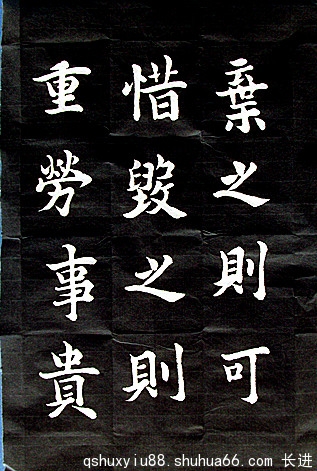 棄之則可
惜毀之則
重勞事貴
qshuxyiu88.shuhua66.com 长进